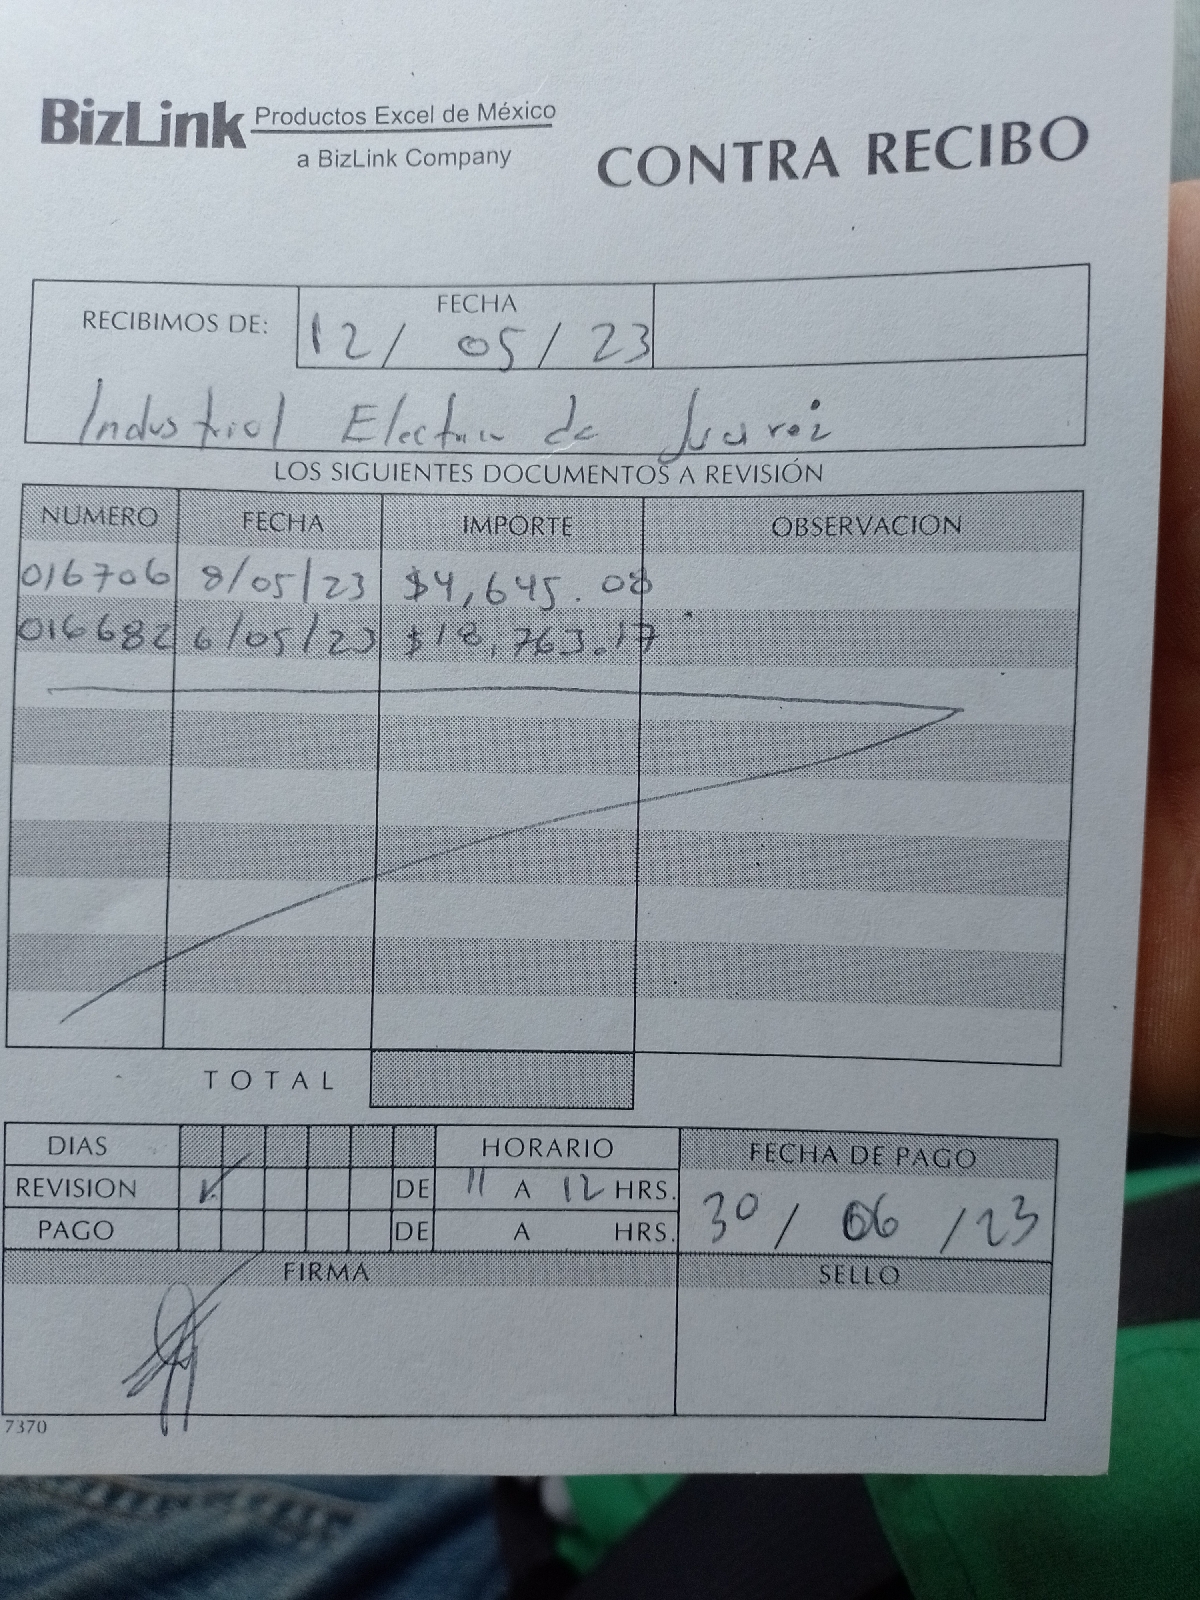 BizLink Productos Excel de México
a BizLink Company
CONTRA RECIBO
RECIBIMOS DE:
FECHA
12/ 05/ 23
Industrial Electrica de Juarez
LOS SIGUIENTES DOCUMENTOS A REVISIÓN
NUMERO FECHA IMPORTE OBSERVACION
016706 8/05/23 $4,645.08
016682 6/05/23 $18,763.17
TOTAL
DIAS HORARIO FECHA DE PAGO
REVISION DE 11 A 12 HRS.
30/ 06 /23
PAGO DE A HRS.
FIRMA SELLO
7370